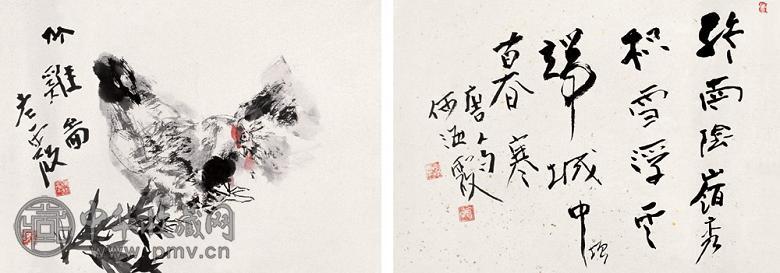 竹雞啚
老
終南陰嶺秀
积雪浮雲
端城中
暮寒
唐句
何海霞
中华收藏网
www.pmv.cn